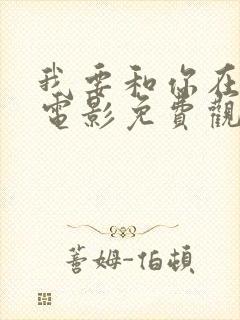 我要和你在
電影免費觀
蓍姆-伯頓